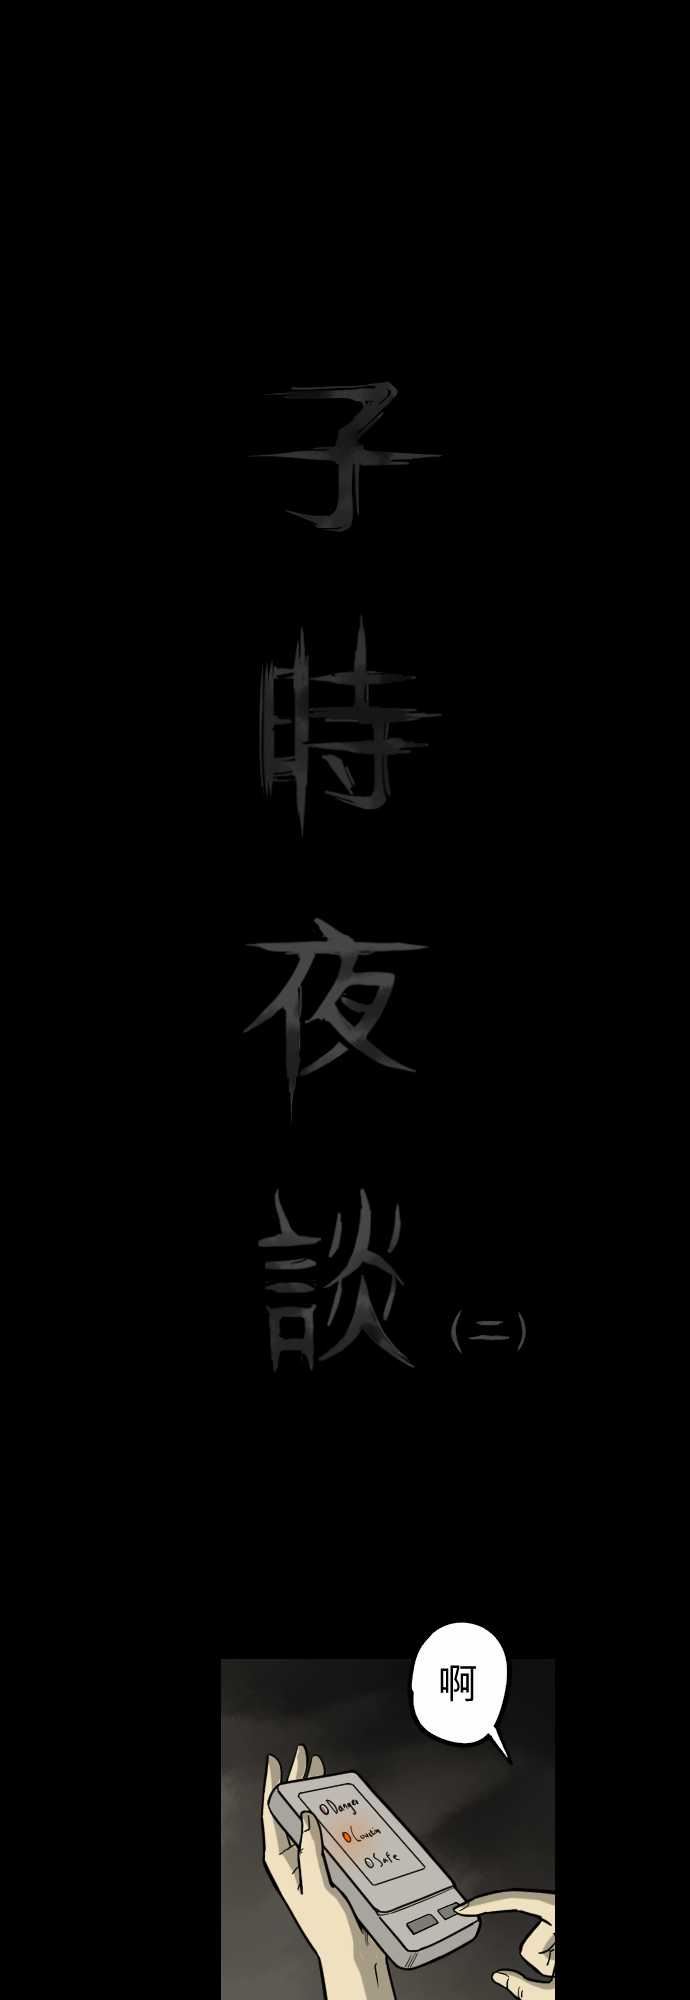 子時夜談
(二)
啊
Danger
Caution
Safe